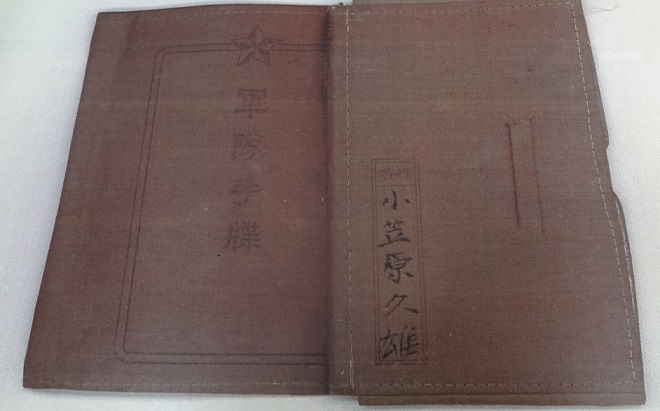 軍隊手牒
小笠原久雄